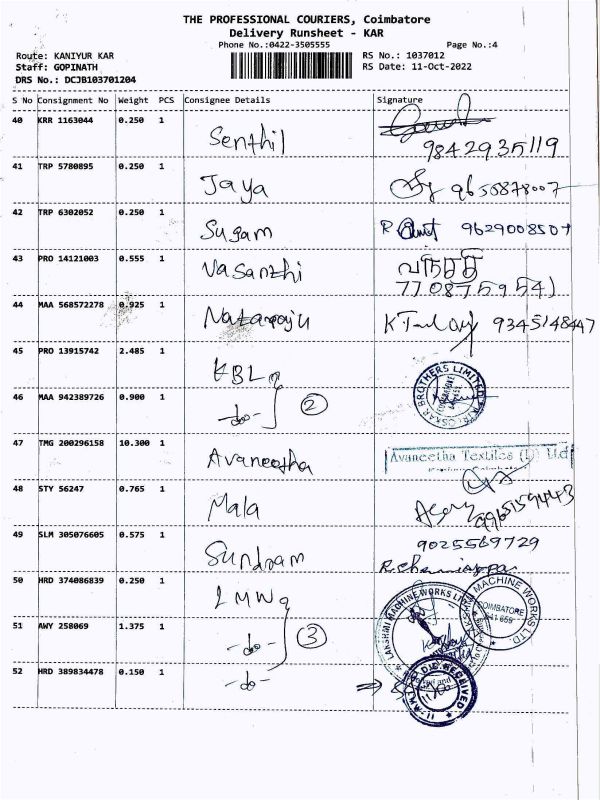 THE PROFESSIONAL COURIERS, Coimbatore
Delivery Runsheet - KAR
Phone No.:0422-3505555 Page No.:4
Route: KANIYUR KAR RS No.: 1037012
Staff: GOPINATH RS Date: 11-Oct-2022
DRS No.: DCJB103701204
S No Consignment No Weight PCS Consignee Details Signature
40 KRR 1163044 0.250 1 Senthil
9842935119
41 TRP 5780895 0.250 1 Jaya 9650878007
42 TRP 6302052 0.250 1 Sugam 9629008507
43 PRO 14121003 0.555 1 Vasanthi
7708759541
44 MAA 568572278 0.925 1 Nataraaju 9345148447
45 PRO 13915742 2.485 1 KBL
46 MAA 942389726 0.900 1 -do- 2
BROTHERS LIMITED
47 TMG 200296158 10.300 1 Avaneetha Avaneetha Textiles (P) Ltd
48 STY 56247 0.765 1 Mala 9965159443
49 SLM 305076605 0.575 1 Sundram 9025569729
50 HRD 374086839 0.250 1 LMW
51 AWY 258069 1.375 1 -do- 3
52 HRD 389834478 0.150 1 -do-
LAKSHMI MACHINE WORKS
MACHINE WORKS LTD.
COIMBATORE
641 659
RECEIVED